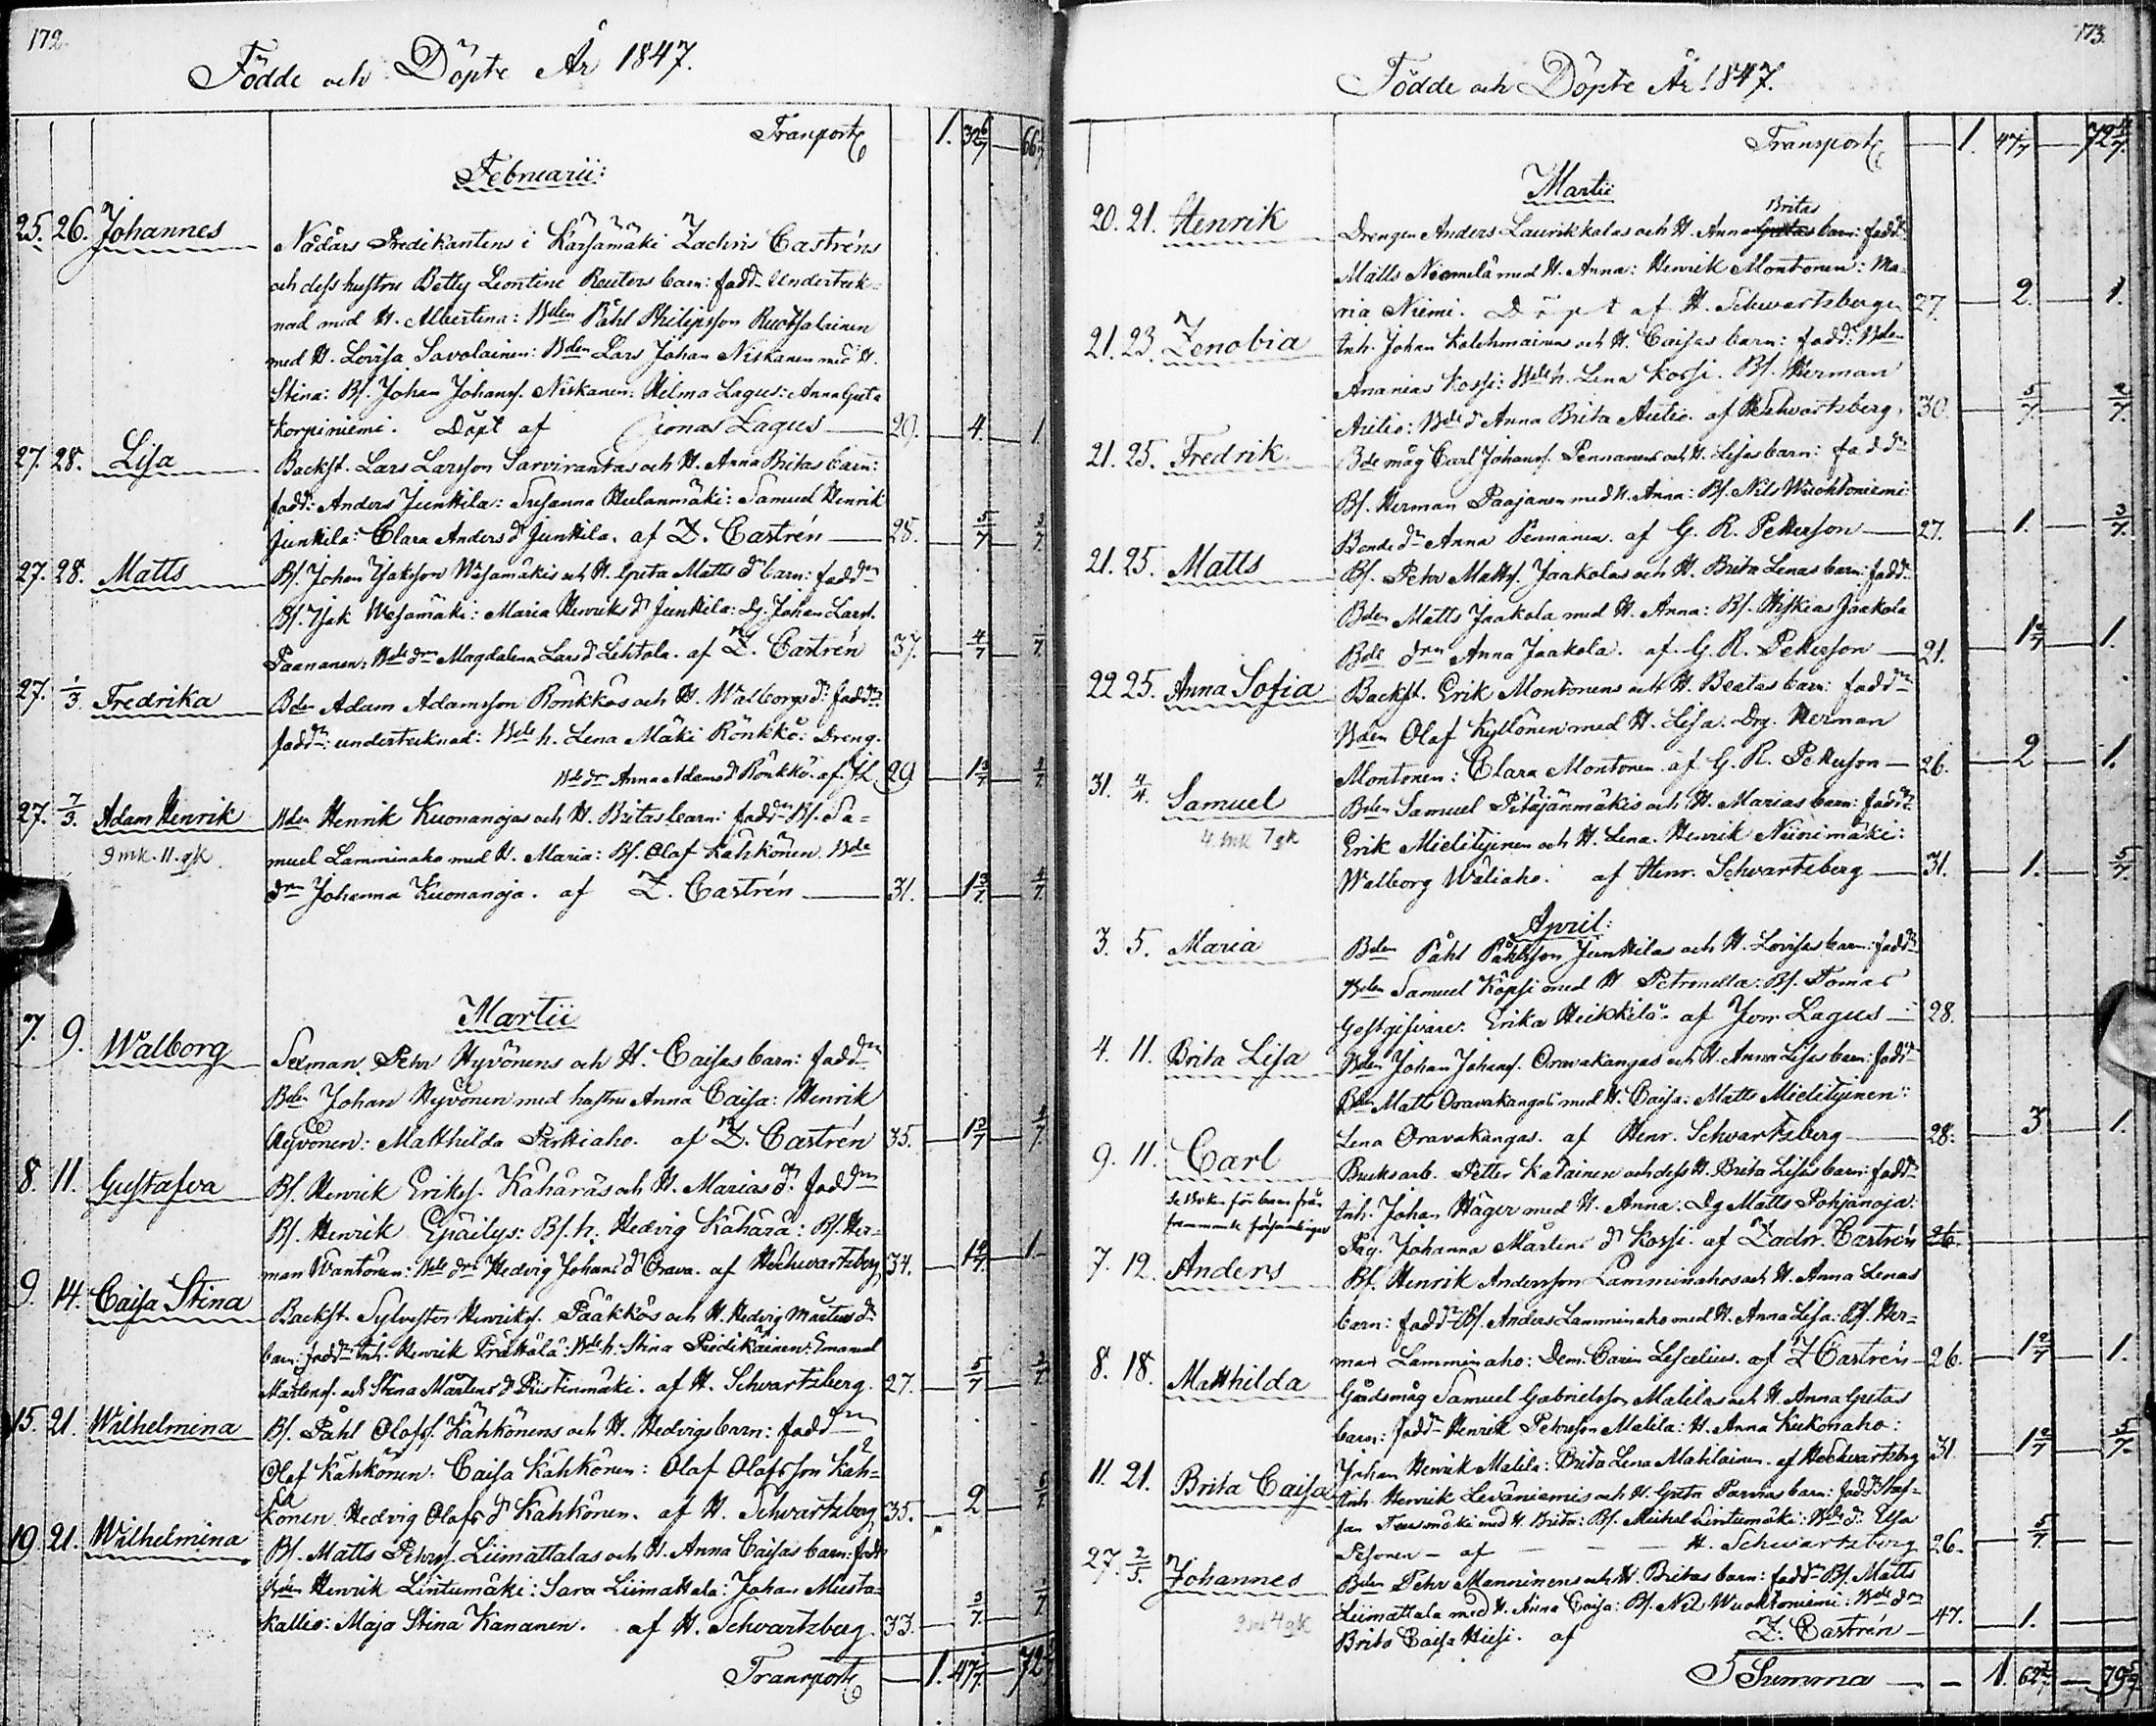 172.
Födde och Döpte År 1847.
Transport 1. 32 6/7 66
Februarii:
25. 26. Johannes Nådårs Predikantens i Kärsämäki Zachris Castréns
och dess hustru Betty Leontine Reuters barn: fadd: Underteck-
nad med H. Albertina: Bden Påhl Philipsson Ruotsalainen
med H. Lovisa Savolainen: Bden Lars Johan Niskanen med H.
Stina: Bs. Johan Johans. Niskanen: Hilma Lagus: Anna Greta
Korpiniemi. Döpt af Jonas Lagus 29. 4. 1.
27. 28. Lisa Backst. Lars Larsson Sarvirantas och H. Anna Britas barn:
fadd: Anders Junttila: Susanna Heilanmäki: Samuel Henrik
Junttila: Clara Anders dr Junttila. af Z. Castrén 28. 5/7 3/7.
27. 28. Matts Bs. Johan Isaksson Wesamäkis och H. Greta Matts dr barn: faddrn
Bs. Isak Wesamäki: Maria Henriks dr Junttila: Dg. Johan Lars.
Paananen: Bde drn Magdalena Lars dr Lehtola. af Z. Castrén 37. 4/7 /7
27. 1/3. Fredrika Bden Adam Adamsson Rönkkös och H. Walborgs dr: faddrn
faddrn: undertecknad: Bde h. Lena Mäki Rönkkö: Dreng.
Bde dr Anna Adams dr Rönkkö. af JL. 29 1 3/7 /7
27. 7/3. Adam Henrik Bden Henrik Kuonanojas och H. Britas barn: faddrn Bs. Sa-
9 mk. 11. gk muel Lamminaho med H. Maria: Bs. Olaf Kähkönen Bde
drn Johanna Kuonanoja. af Z. Castrén 31. 1 3/7. /7
Martii
7. 9. Walborg Sexman Pehr Hyvönens och H. Caisas barn: faddrn
Bden Johan Hyvönen med hustru Anna Caisa: Henrik
Hyvönen: Matthilda Parkkiaho. af Z. Castrén 35. 1 3/7 /7
8. 11. Gustafva Bs. Henrik Eriks. Kähäräs och H. Marias dr. faddrn
Bs. Henrik Epäilys: Bs. h. Hedvig Kähärä: Bs. Her-
man Wantonen: Bde drn Hedvig Johans dr Orava. af H Schwartzberg 34. 1 4/7. 1.
9. 14. Caisa Stina Backst. Sylvester Henriks. Pääkkös och H. Hedvig Mårtens dr
barn: faddrn Inh. Henrik Prättälä: Bde h. Stina Piedikäinen: Emanuel
Mårtens. och Stina Mårtens dr Ristinmäki. af H. Schwartzberg. 27. 5/7 /7
15. 21. Wilhelmina Bs. Påhl Olofs. Kähkönens och H. Hedvigs barn: faddrn
Olaf Kähkönen. Caisa Kähkönen: Olaf Olafsson Käh-
könen Hedvig Olafs dr Kähkönen. af H. Schwartzberg 35. 2 /7
19. 21. Wilhelmina Bs. Matts Pehrs. Liimattalas och H. Anna Caisas barn: fadd
Bden Henrik Lintumäki: Sara Liimattala: Johan Musta-
kallio: Maja Stina Kananen. af H. Schwartzberg. 33. 3/7. /7
Transport 1. 47/7. 72
173.
Födde och Döpte År 1847.
Transport 1. 47/7 72 4/7.
Martii
Britas
20. 21. Henrik Drengen Anders Laurikkalas och H. Anna Gretas barn: fadd:
Matts Niemelä med H. Anna: Henrik Montonen: Ma-
ria Niemi. Döpt af H. Schwartzberg 27. 2. 1.
21. 23. Zenobia Inh. Johan Kolehmainens och H. Caisas barn: fadd: Bden
Ananias Kossi: Bde h. Lena Kossi. Bs. Herman
Autio: Bde dr Anna Brita Autio. af H Schwartzberg. 30. 5/7 2/7.
21. 25. Fredrik Bde måg Carl Johans. Pennanens och H. Lisas barn: faddrn
Bs. Herman Paajanen med H. Anna: Bs. Nils Wuohtoniemi:
Bonde dr Anna Pennanen. af G. R. Petterson 27. 1. 3/7.
21. 25. Matts Bs. Pehr Matts. Jaakolas och H. Brita Lenas barn: fadd:
Bden Matts Jaakola med H. Anna: Bs. Hiskias Jaakola
Bde drn Anna Jaakola. af G. R. Petterson 21. 1 2/7 1.
22 25. Anna Sofia Backst. Erik Montonens och H. Beatas barn: faddrn
Bden Olaf Kyllönen med H. Lisa. Drg. Herman
Montonen: Clara Montonen. af G. R. Petterson 26. 2 1.
31. 4/4. Samuel Bden Samuel Pitäjänmäkis och H. Marias barn: faddrn
4 mk 7 gk Erik Mielityinen och H. Lena. Henrik Niinimäki:
Walborg Wäliaho. af Henr. Schvartzberg 31. 1. 5/7.
April:
3. 5. Maria Bden Påhl Påhlsson Junttilas och H. Lovisas barn: faddrn
Bden Samuel Köpsi med H Petronella: Bs. Tomas
Gestgifvare: Erika Heikkilä af Jon Lagus 28.
4. 11. Brita Lisa Bden Johan Johans. Oravakangas och H. Anna Lisas barn: faddrn
Bden Matts Oravakangas med H. Caisa: Matts Mielityinen:
Lena Oravakangas. af Henr. Schvartzberg 28. 3. 1.
9. 11. Carl Bruksarb. Petter Katainen och dess H. Brita Lisas barn: fadd
se boken för barn från Inh. Johan Häger med H. Anna. Dg Matts Pohjanoja:
främmande församlingar Pig. Johanna Mårtens dr Kossi. af Zachr. Castrén 26.
7. 12. Anders Bs. Henrik Andersson Lamminahos och H. Anna Lenas
barn: faddrn Bs. Anders Lamminaho med H. Anna Lisa: Bs. Her-
man Lamminaho: Dem. Carin Lescelius. af Z Castrén 26. 1 2/7 1.
8. 18. Matthilda Gårdsmåg Samuel Gabrielsson Matilas och H. Anna Gretas
barn: faddrn Henrik Pehrsson Matila: H. Anna Kukonaho:
Johan Henrik Matila: Brita Lena Matilainen. af H Schvartzberg 31 1 2/7 5/7.
11. 21. Brita Caisa Inh. Henrik Leväniemis och H. Greta Parvas barn: faddrn Staf-
fan med H. Brita: Bs. Michel Lintumäki: Bde dr Elsa
Pesonen - af - - - H. Schvartzberg 26. 5/7
27. 2/5. Johannes Bden Pehr Manninens och H. Britas barn: faddrn Bs. Matts
Liimattala med H. Anna Caisa: Bs. Nils Wuohtoniemi: Bde drn
9 mk 4 gk Brita Caisa Hiisi. af Z. Castrén 47. 1.
Summa - - 1. 62 79 5/7